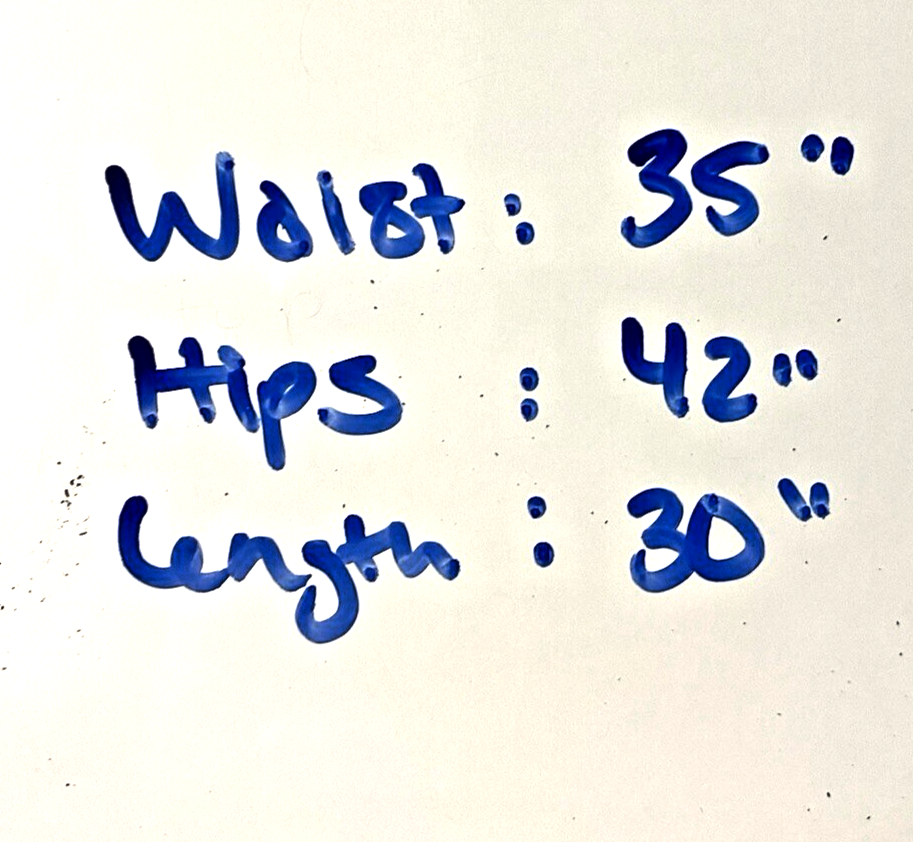 Waist : 35"
Hips : 42"
Length : 30"